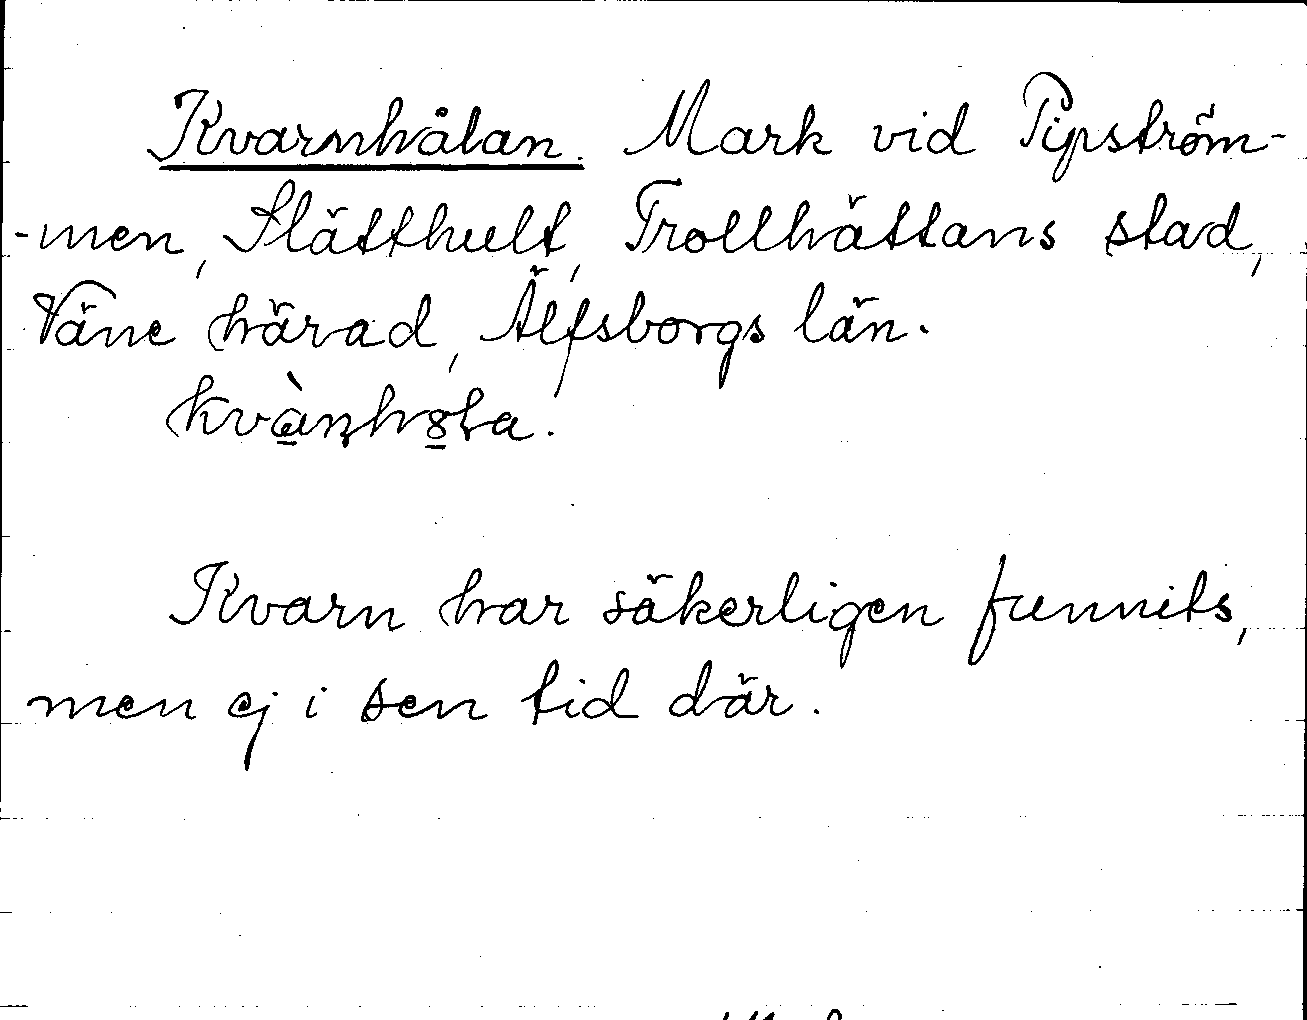 Kvarnhålan. Mark vid Pipström-
-men, Slätthult, Trollhättans stad,
Väne härad, Älfsborgs län.
Kvarn har säkerligen funnits,
men ej i sen tid där.